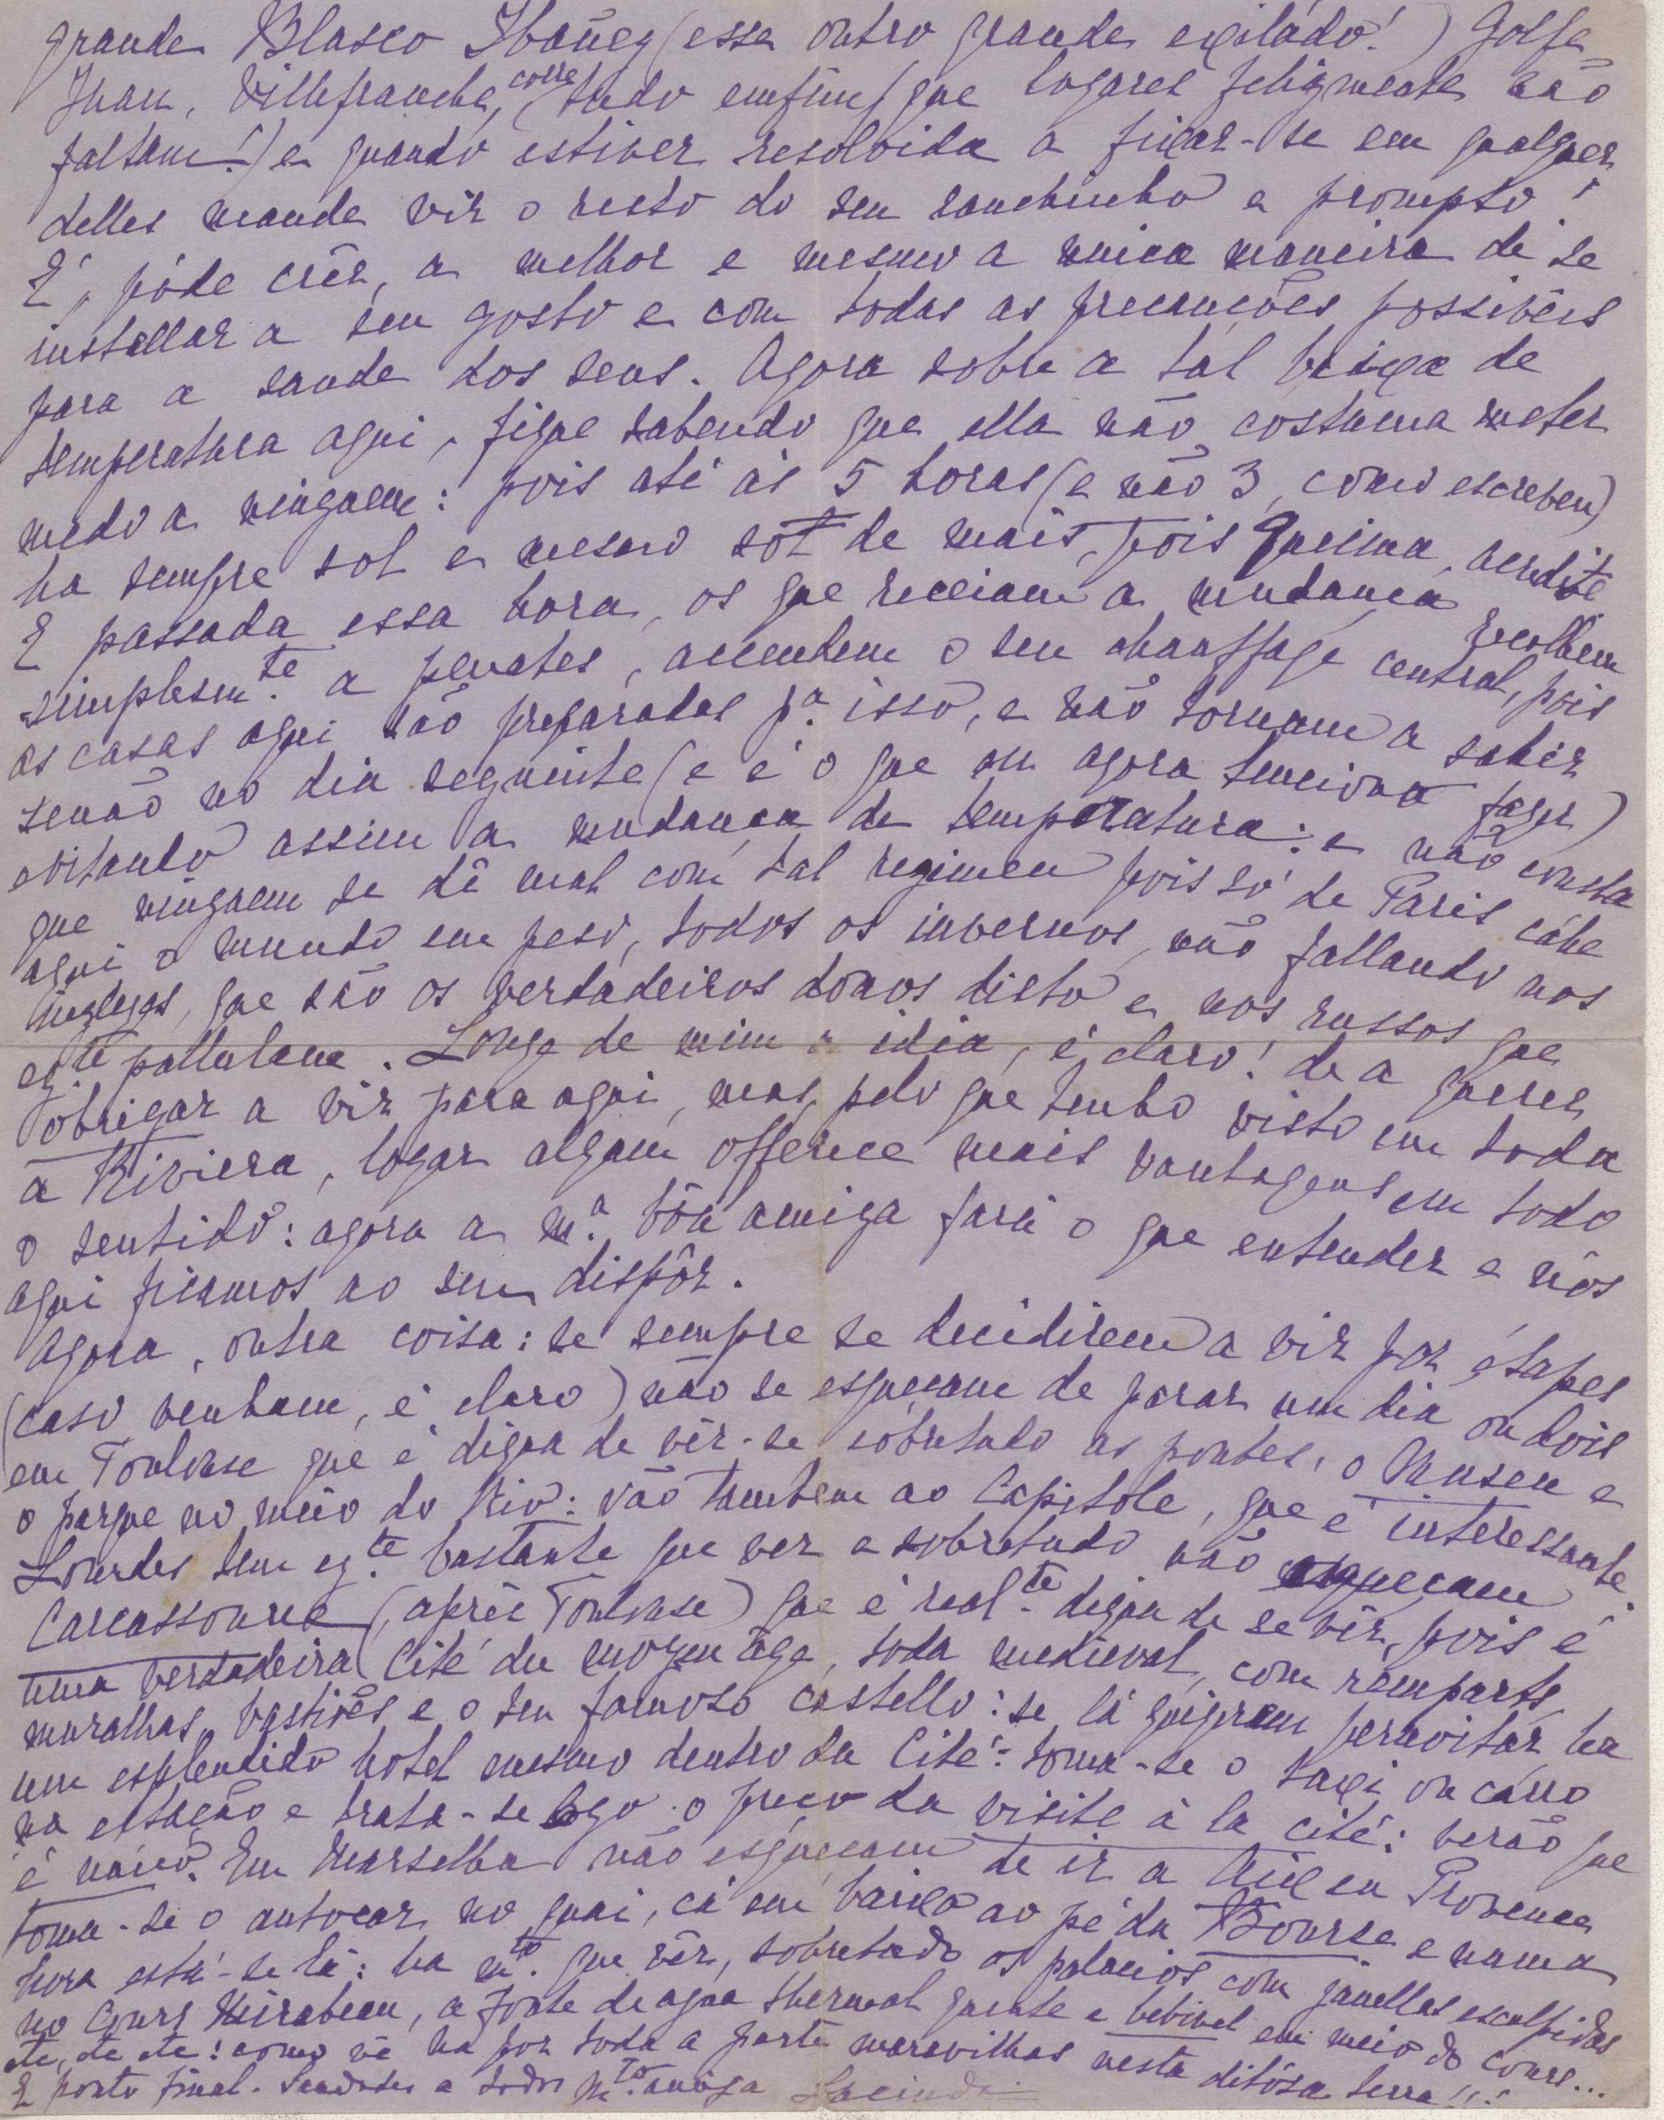 grande Blasco Ibañez (esse outro grande exilado!) Golfe
Juan, Villefranche, corre tudo emfim (que logares felizmente não
faltam!) e quando estiver resolvida a fixar-se em qualquer
delles mande vir o resto do seu ranchinho e prompto!
É, póde crêr, a melhor e mesmo a unica maneira de se
installar a seu gosto e com todas as precauções possiveis
para a saude dos seus. Agora sobre a tal baixa de
temperatura aqui, fique sabendo que ella não costuma meter
medo a ninguem: pois até ás 5 horas (e não 3, como escreveu)
ha sempre sol e mesmo sol de mais, pois queima, acredite
E passada essa hora, os que receiam a mudança recolhem
simplesm.te a penates, accendem o seu chauffage central, pois
as casas aqui são preparadas p.a isso, e não tornam a sahir
senão no dia seguinte (e é o que eu agora tenciono fazer)
evitando assim a mudança de temperatura: e não consta
que ninguem se dê mal com tal regimen pois só de Paris cáhe
aqui o mundo em peso, todos os invernos, não fallando nos
inglezes, que são os verdadeiros donos disto e nos russos que
eg.te pullulam. Longe de mim a idéa, é claro! de a querer
obrigar a vir para aqui, mas, pelo que tenho visto em toda
a Riviera, logar algum offerece mais vantagens em todo
o sentido: agora a m.a bôa amiga fará o que entender e nós
aqui ficamos ao seu dispôr.
Agora, outra coisa: se sempre se decidirem a vir por étapes
(caso venham, é claro) não se esqueçam de parar um dia ou dois
em Toulouse que é digna de vêr-se sobretudo as pontes, o Museu e
o parque no meio do Rio: vão tambem ao Capitole, que é interessante.
Lourdes tem eg.te bastante que ver e sobretudo não esqueçam
Carcassonne (après Toulouse) que é real.te digna de se vêr, pois é
uma verdadeira Cité du moyen âge, toda medieval, com remparts,
muralhas, bastiões e o seu famoso castello: se lá quizerem pernoitar, ha
um esplendido hotel mesmo dentro da Cité: toma-se o taxi ou carro
na estação e trata-se logo o preço da visite à la cité: verão que
é unico. Em Marselha não esqueçam de ir a Aix en Provence
toma-se o autocar no quai, cá em baixo ao pé da Bourse e numa
hora está-se lá: ha m.to que vêr, sobretudo os palacios com janellas esculpidas
no Cours Mirabeau, a fonte de agua thermal quente e bebivel em meio do Cours...
etc, etc etc: como vê ha por toda a parte maravilhas nesta ditósa terra!!!
E ponto final. Saudades a todos m.to amiga Lucinda